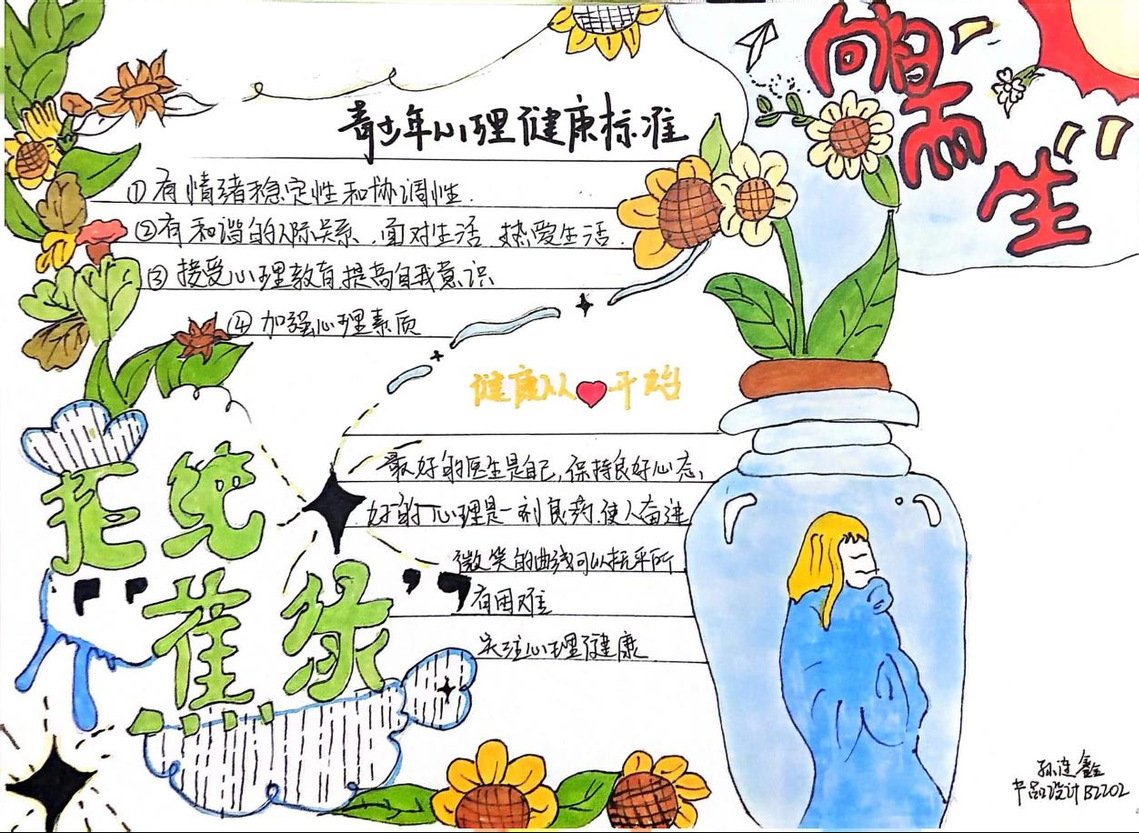 向阳而生
青少年心理健康标准
①有情绪稳定性和协调性.
②有和谐的人际关系,面对生活,热爱生活.
③接受心理教育,提高自我意识
④加强心理素质
健康从❤开始
最好的医生是自己,保持良好心态,
好的心理是一剂良药,使人奋进
微笑的曲线可以抚平所
有困难
关注心理健康
拒绝
"蕉绿"
孙连鑫
产品设计B2202